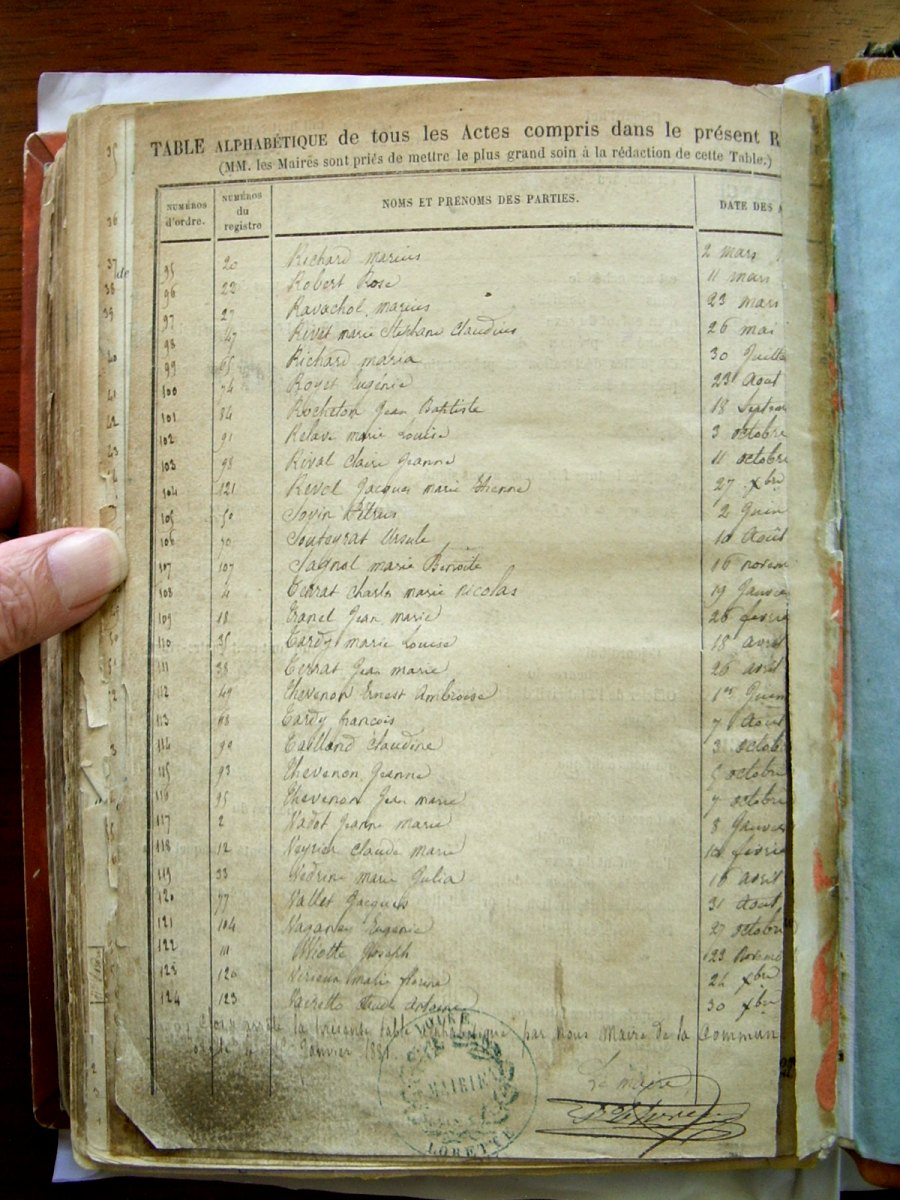 TABLE ALPHABÉTIQUE de tous les Actes compris dans le présent R
(MM. les Maires sont priés de mettre le plus grand soin à la rédaction de cette Table.)
NUMÉROS d'ordre. NUMÉROS du registre NOMS ET PRÉNOMS DES PARTIES. DATE DES A
95 20 Richard Marius 2 mars
96 22 Robert Rose 11 mars
97 27 Ravachol Marius 23 mars
98 47 Rivet marie Stéphane Claudius 26 mai
99 65 Richard maria 30 Juille
100 74 Royet Eugénie 23 Aout
101 84 Rocheton Jean Baptiste 18 Septem
102 91 Relave marie Louise 3 octobre
103 98 Rival Claire Jeanne 11 octobre
104 121 Revol Jacques marie Etienne 27 xbre
105 50 Sovin Pétrus 2 Juin
106 70 Souteyrat Ursule 10 Août
107 107 Sagnol marie Benoîte 16 novem
108 4 Terrat Charles marie nicolas 19 Janvie
109 18 Granel Jean marie 26 fevrie
110 35 Tardy marie Louise 18 avril
111 38 Terrat Jean marie 26 avril
112 49 Thevenon Ernest Ambroise 1er Juin
113 68 Tardy françois 7 Août
114 90 Tailland Claudine 3 octob
115 93 Thevenon Jeanne 5 octobre
116 95 Thevenon Jean marie 7 octobre
117 2 Nadot Jeanne marie 8 Janvie
118 12 Veyrier Claude Marie 10 fevrie
119 33 Vedrine marie Julia 16 avril
120 77 Vallet Jacques 31 Aout
121 104 Vaganey Eugénie 27 octobre
122 111 Violette Joseph 23 Novem
123 120 24 xbre
124 123 Antoine 30 xbre
la présente table alphabétique par nous Maire de la Commun
Janvier 1881
Le maire
MAIRIE
LORETTE